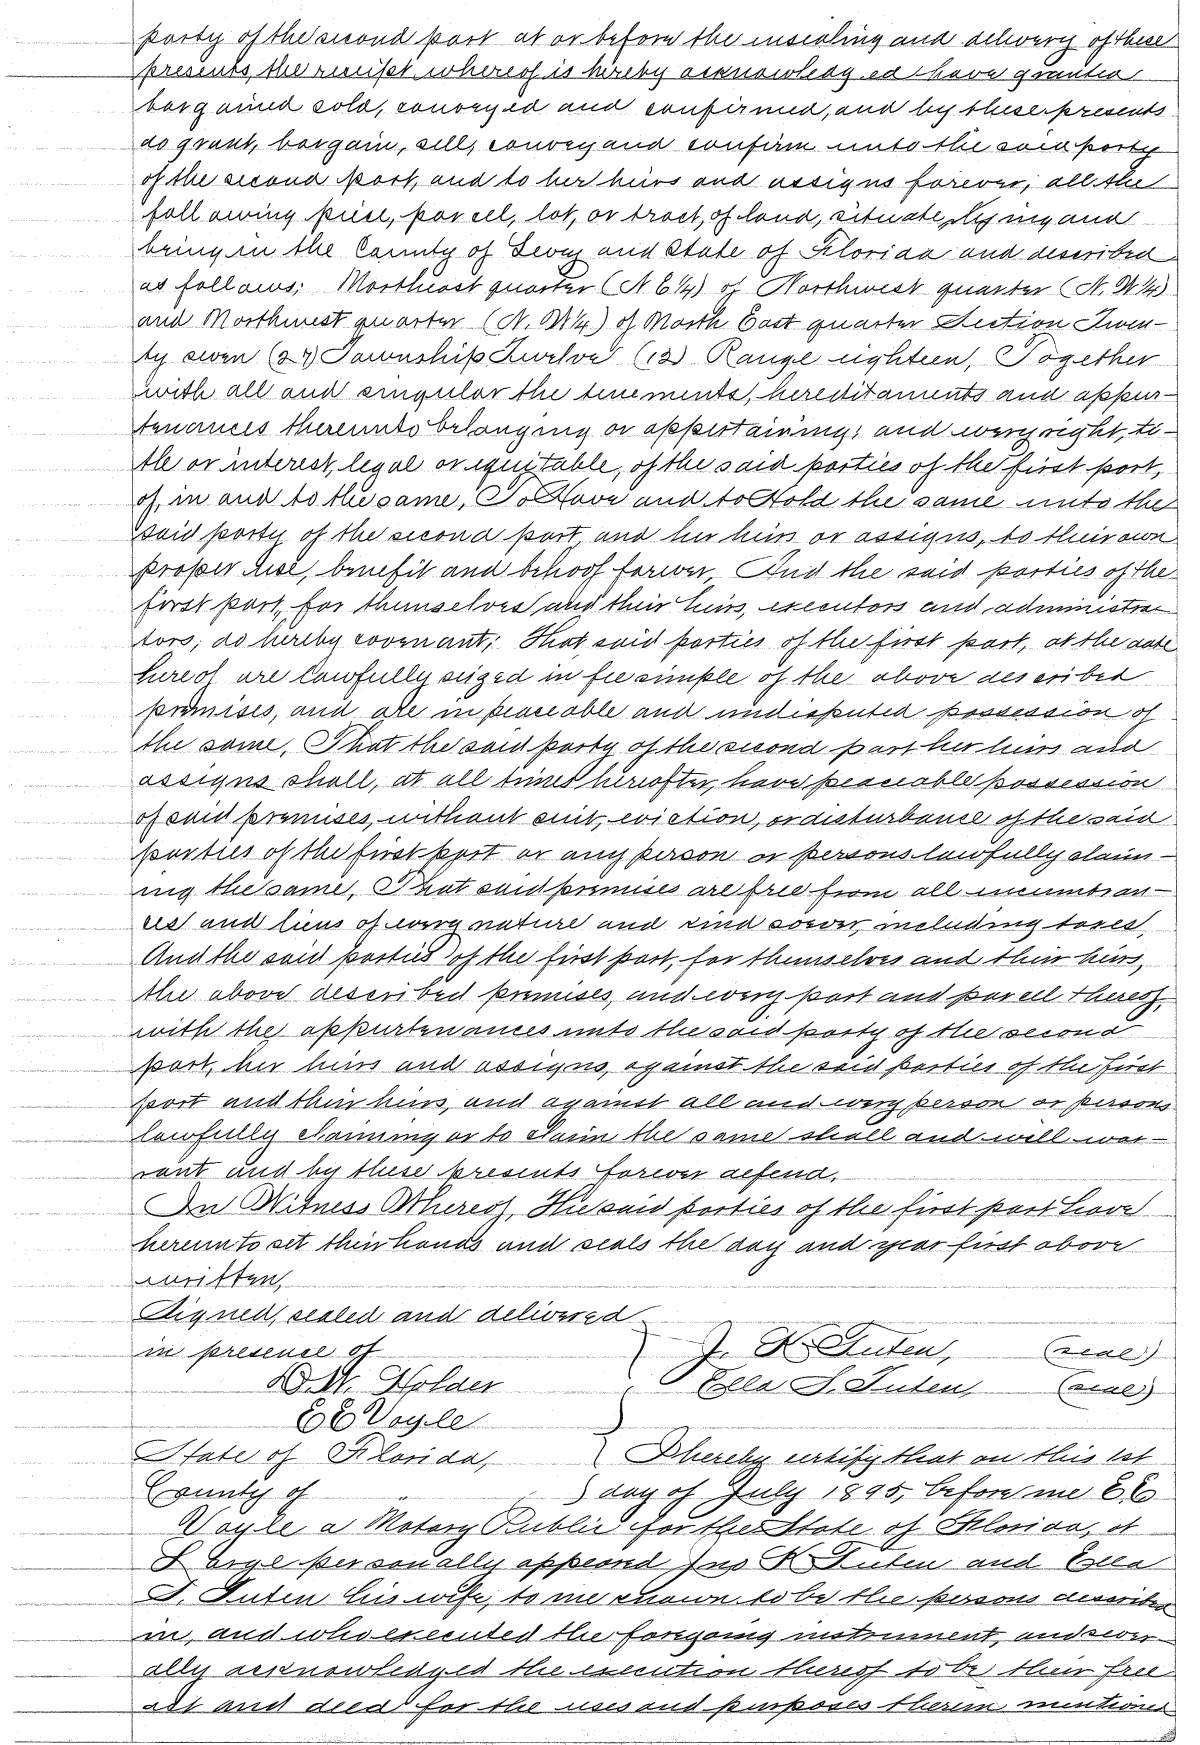 party of the second part at or before the insealing and delivery of these
presents, the receipt whereof is hereby acknowledged have granted
bargained sold, conveyed and confirmed, and by these presents
do grant, bargain, sell, convey and confirm unto the said party
of the second part, and to her heirs and assigns forever, all the
following piece, parcel, lot, or tract, of land, situate, lying and
being in the County of Levy and State of Florida and described
as follows; Northeast quarter (N E 1/4) of Northwest quarter (N. W 1/4)
and Northwest quarter (N. W 1/4) of North East quarter Section Twen-
ty seven (27) Township Twelve (12) Range eighteen, Together
with all and singular the tenements, hereditaments and appur-
tenances thereunto belonging or appertaining; and every right, ti-
tle or interest, legal or equitable, of the said parties of the first part,
of, in and to the same, To Have and to Hold the same unto the
said party of the second part, and her heirs or assigns, to their own
proper use, benefit and behoof forever, And the said parties of the
first part, for themselves and their heirs, executors and administra-
tors, do hereby covenant; That said parties of the first part, at the date
hereof are lawfully seized in fee simple of the above described
premises, and are in peaceable and undisputed possession of
the same, That the said party of the second part her heirs and
assigns shall, at all times hereafter, have peaceable possession
of said premises, without suit, eviction, or disturbance of the said
parties of the first part or any person or persons lawfully claim-
ing the same, That said premises are free from all incumbran-
ces and liens of every nature and kind soever, including taxes,
And the said parties of the first part, for themselves and their heirs,
the above described premises, and every part and parcell thereof,
with the appurtenances unto the said party of the second
part, her heirs and assigns, against the said parties of the first
part and their heirs, and against all and every person or persons
lawfully claiming or to claim the same shall and will war-
rant and by these presents forever defend.
In Witness Whereof, The said parties of the first part have
hereunto set their hands and seals the day and year first above
written,
Signed, sealed and delivered
in presence of J. K. Tuten, (seal)
D. W. Holder Ella S. Tuten, (seal)
E E Voyle
State of Florida, I hereby certify that on this 1st
County of day of July 1895, before me E. E
Voyle a Notary Public for the State of Florida, at
Large personally appeared Jno K Tuten and Ella
S. Tuten his wife, to me known to be the persons described
in, and who executed the foregoing instrument, and sever-
ally acknowledged the execution thereof to be their free
act and deed for the uses and purposes therein mentioned